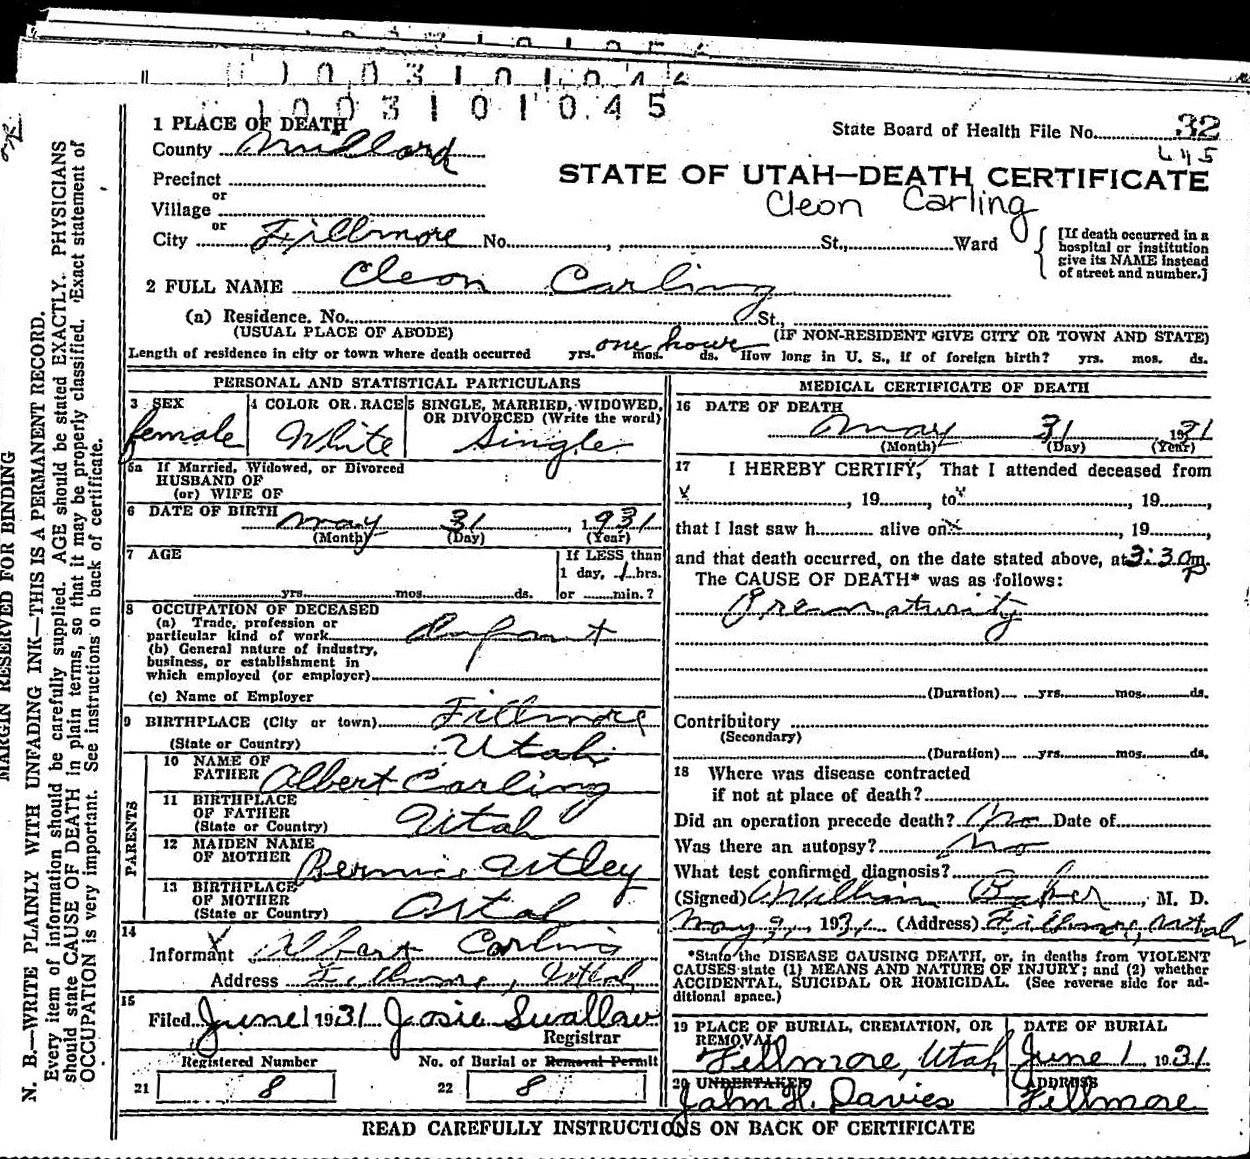 1003101045
1 PLACE OF DEATH
County Millard
State Board of Health File No. 32
445
Precinct
or
Village
or
City Fillmore No. , St., Ward
STATE OF UTAH—DEATH CERTIFICATE
Cleon Carling
[If death occurred in a
hospital or institution
give its NAME instead
of street and number.]
2 FULL NAME Cleon Carling
(a) Residence. No. St.,
(USUAL PLACE OF ABODE) (IF NON-RESIDENT GIVE CITY OR TOWN AND STATE)
Length of residence in city or town where death occurred yrs. mos. ds. one hour How long in U. S., if of foreign birth? yrs. mos. ds.
PERSONAL AND STATISTICAL PARTICULARS
3 SEX
female
4 COLOR OR RACE
White
5 SINGLE, MARRIED, WIDOWED,
OR DIVORCED (Write the word)
Single
5a If Married, Widowed, or Divorced
HUSBAND OF
(or) WIFE OF
6 DATE OF BIRTH
May 31, 1931
(Month) (Day) (Year)
7 AGE
yrs. mos. ds.
If LESS than
1 day, 1 hrs.
or min.?
8 OCCUPATION OF DECEASED
(a) Trade, profession or
particular kind of work Infant
(b) General nature of industry,
business, or establishment in
which employed (or employer)
(c) Name of Employer
9 BIRTHPLACE (City or town) Fillmore
(State or Country) Utah
PARENTS
10 NAME OF
FATHER Albert Carling
11 BIRTHPLACE
OF FATHER
(State or Country) Utah
12 MAIDEN NAME
OF MOTHER Bernice Astley
13 BIRTHPLACE
OF MOTHER
(State or Country) Utah
14
Informant Albert Carling
Address Fillmore, Utah
15
Filed June 1 1931 Josie Swallow
Registrar
Registered Number
21 8
No. of Burial or Removal Permit
22 8
MEDICAL CERTIFICATE OF DEATH
16 DATE OF DEATH
May 31 1931
(Month) (Day) (Year)
17 I HEREBY CERTIFY, That I attended deceased from
x , 19 , to x , 19 ,
that I last saw h alive on x , 19 ,
and that death occurred, on the date stated above, at 3:30 pm.
The CAUSE OF DEATH* was as follows:
Prematurity
(Duration) yrs. mos. ds.
Contributory
(Secondary)
(Duration) yrs. mos. ds.
18 Where was disease contracted
if not at place of death?
Did an operation precede death? No Date of
Was there an autopsy? No
What test confirmed diagnosis?
(Signed) William Baker, M. D.
May 9, 1931. (Address) Fillmore, Utah
*State the DISEASE CAUSING DEATH, or, in deaths from VIOLENT
CAUSES state (1) MEANS AND NATURE OF INJURY; and (2) whether
ACCIDENTAL, SUICIDAL OR HOMICIDAL. (See reverse side for ad-
ditional space.)
19 PLACE OF BURIAL, CREMATION, OR
REMOVAL
Fillmore, Utah
DATE OF BURIAL
June 1 1931.
20 UNDERTAKER
John H. Davies
ADDRESS
Fillmore
READ CAREFULLY INSTRUCTIONS ON BACK OF CERTIFICATE
MARGIN RESERVED FOR BINDING
N. B.—WRITE PLAINLY WITH UNFADING INK—THIS IS A PERMANENT RECORD.
Every item of information should be carefully supplied. AGE should be stated EXACTLY. PHYSICIANS
should state CAUSE OF DEATH in plain terms, so that it may be properly classified. Exact statement of
OCCUPATION is very important. See instructions on back of certificate.